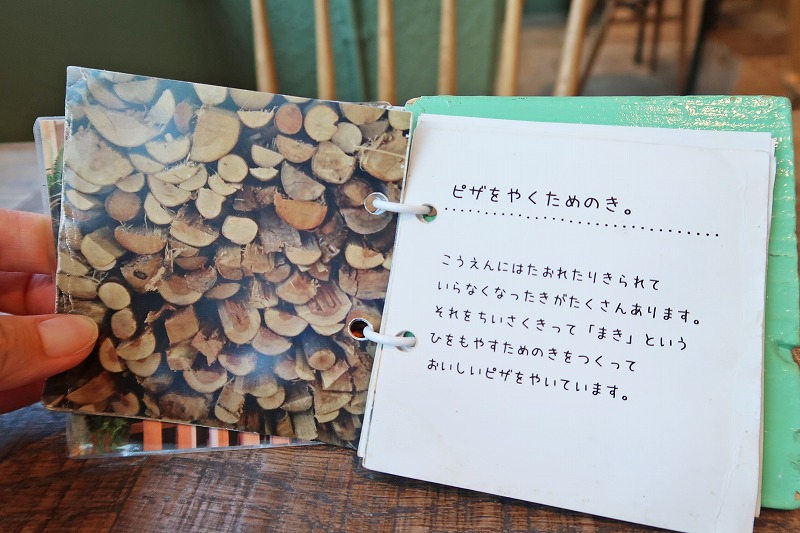 ピザをやくためのき。
こうえんにはたおれたりきられて
いらなくなったきがたくさんあります。
それをちいさくきって「まき」という
ひをもやすためのきをつくって
おいしいピザをやいています。